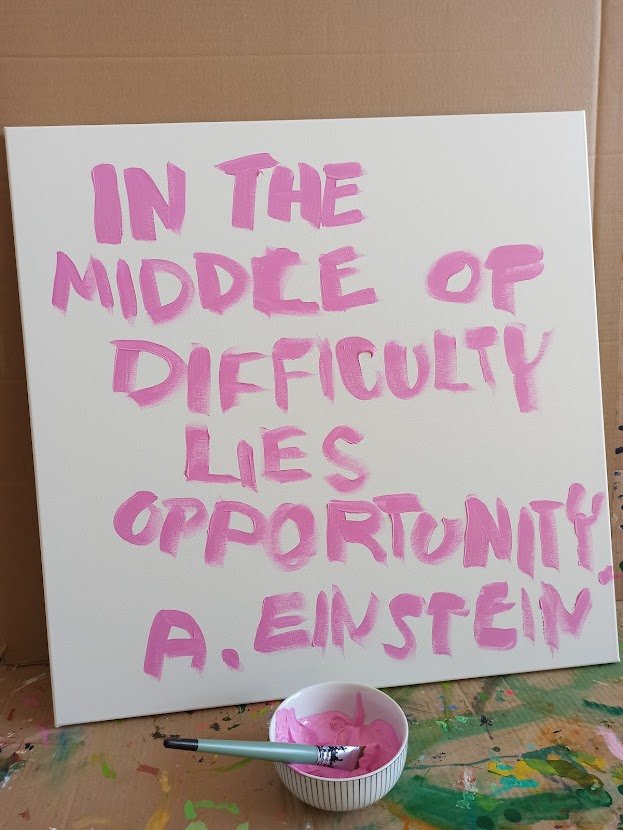 IN THE
MIDDLE OF
DIFFICULTY
LIES
OPPORTUNITY.
A. EINSTEIN